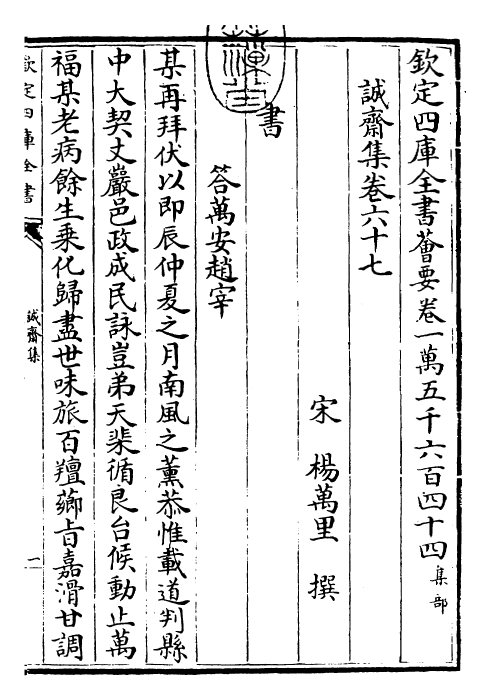 欽定四庫全書薈要卷一萬五千六百四十四集部
誠齋集卷六十七
宋 楊萬里 撰
書
答萬安趙宰
某再拜伏以即辰仲夏之月南風之薰恭惟載道判縣
中大契丈嚴邑政成民詠豈弟天棐循良台候動止萬
福某老病餘生乗化歸盡世味旅百羶薌旨嘉滑甘調
欽定四庫全書
誠齋集
一